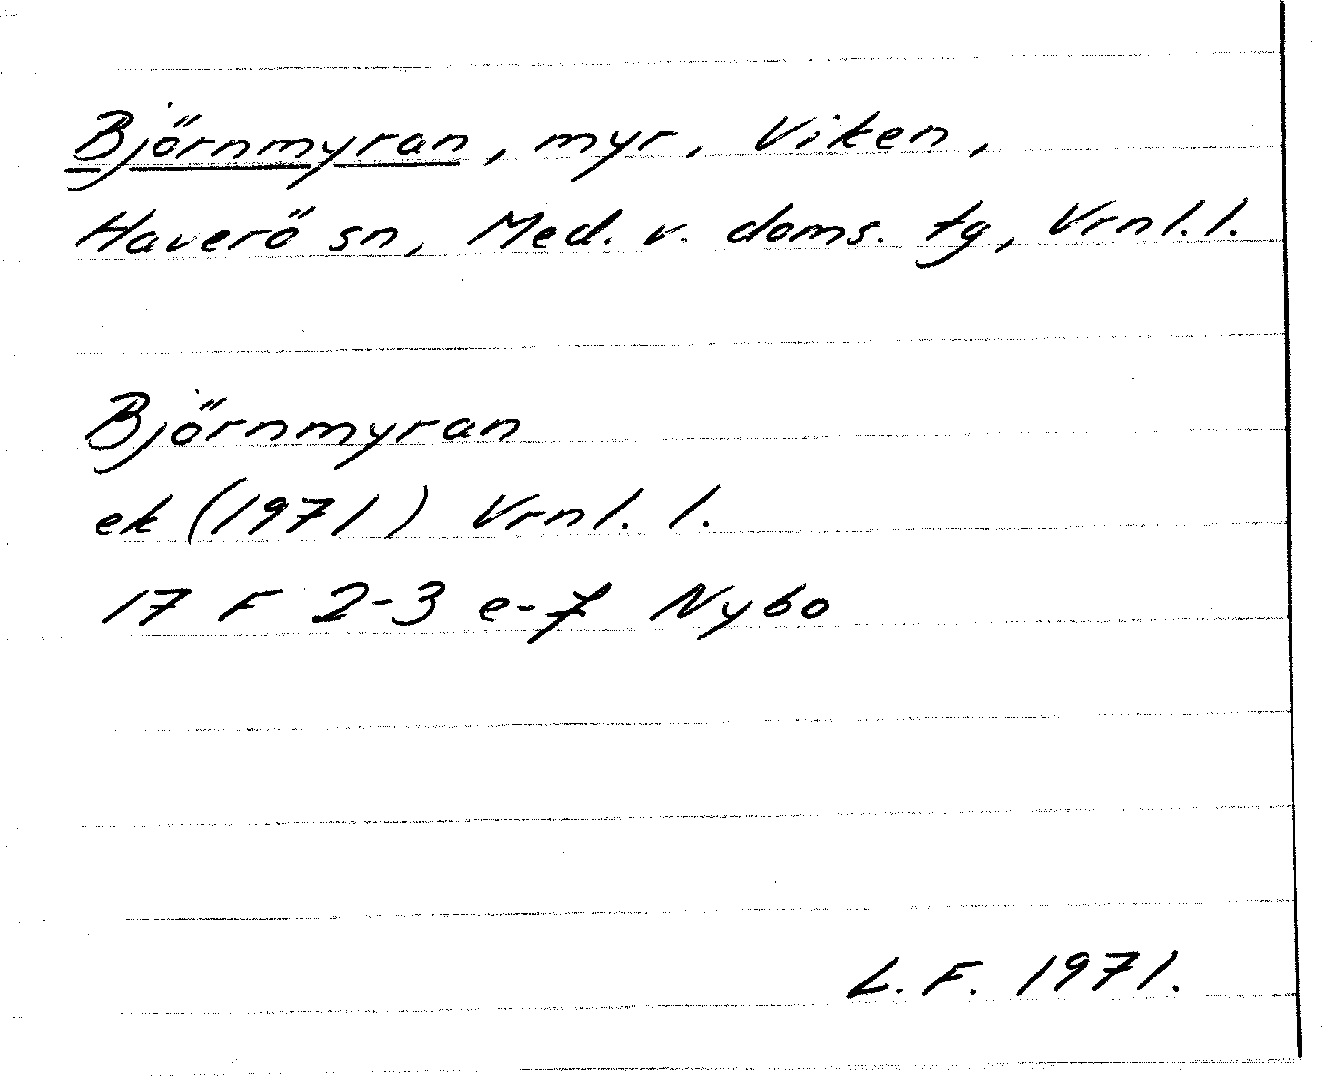 Björnmyran, myr, Viken,
Haverö sn, Med. v. doms. tg, Vrnl. l.
Björnmyran
ek (1971) Vrnl. l.
17 F 2-3 e-f Nybo
L. F. 1971.